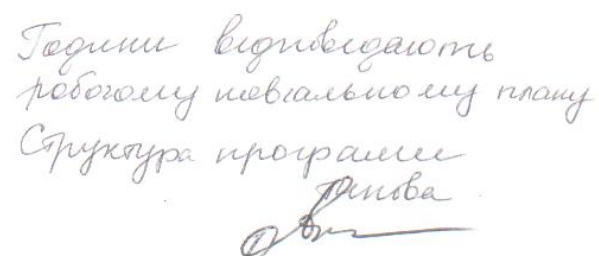 Години відповідають
робочому навчальному плану
Структура програми
типова